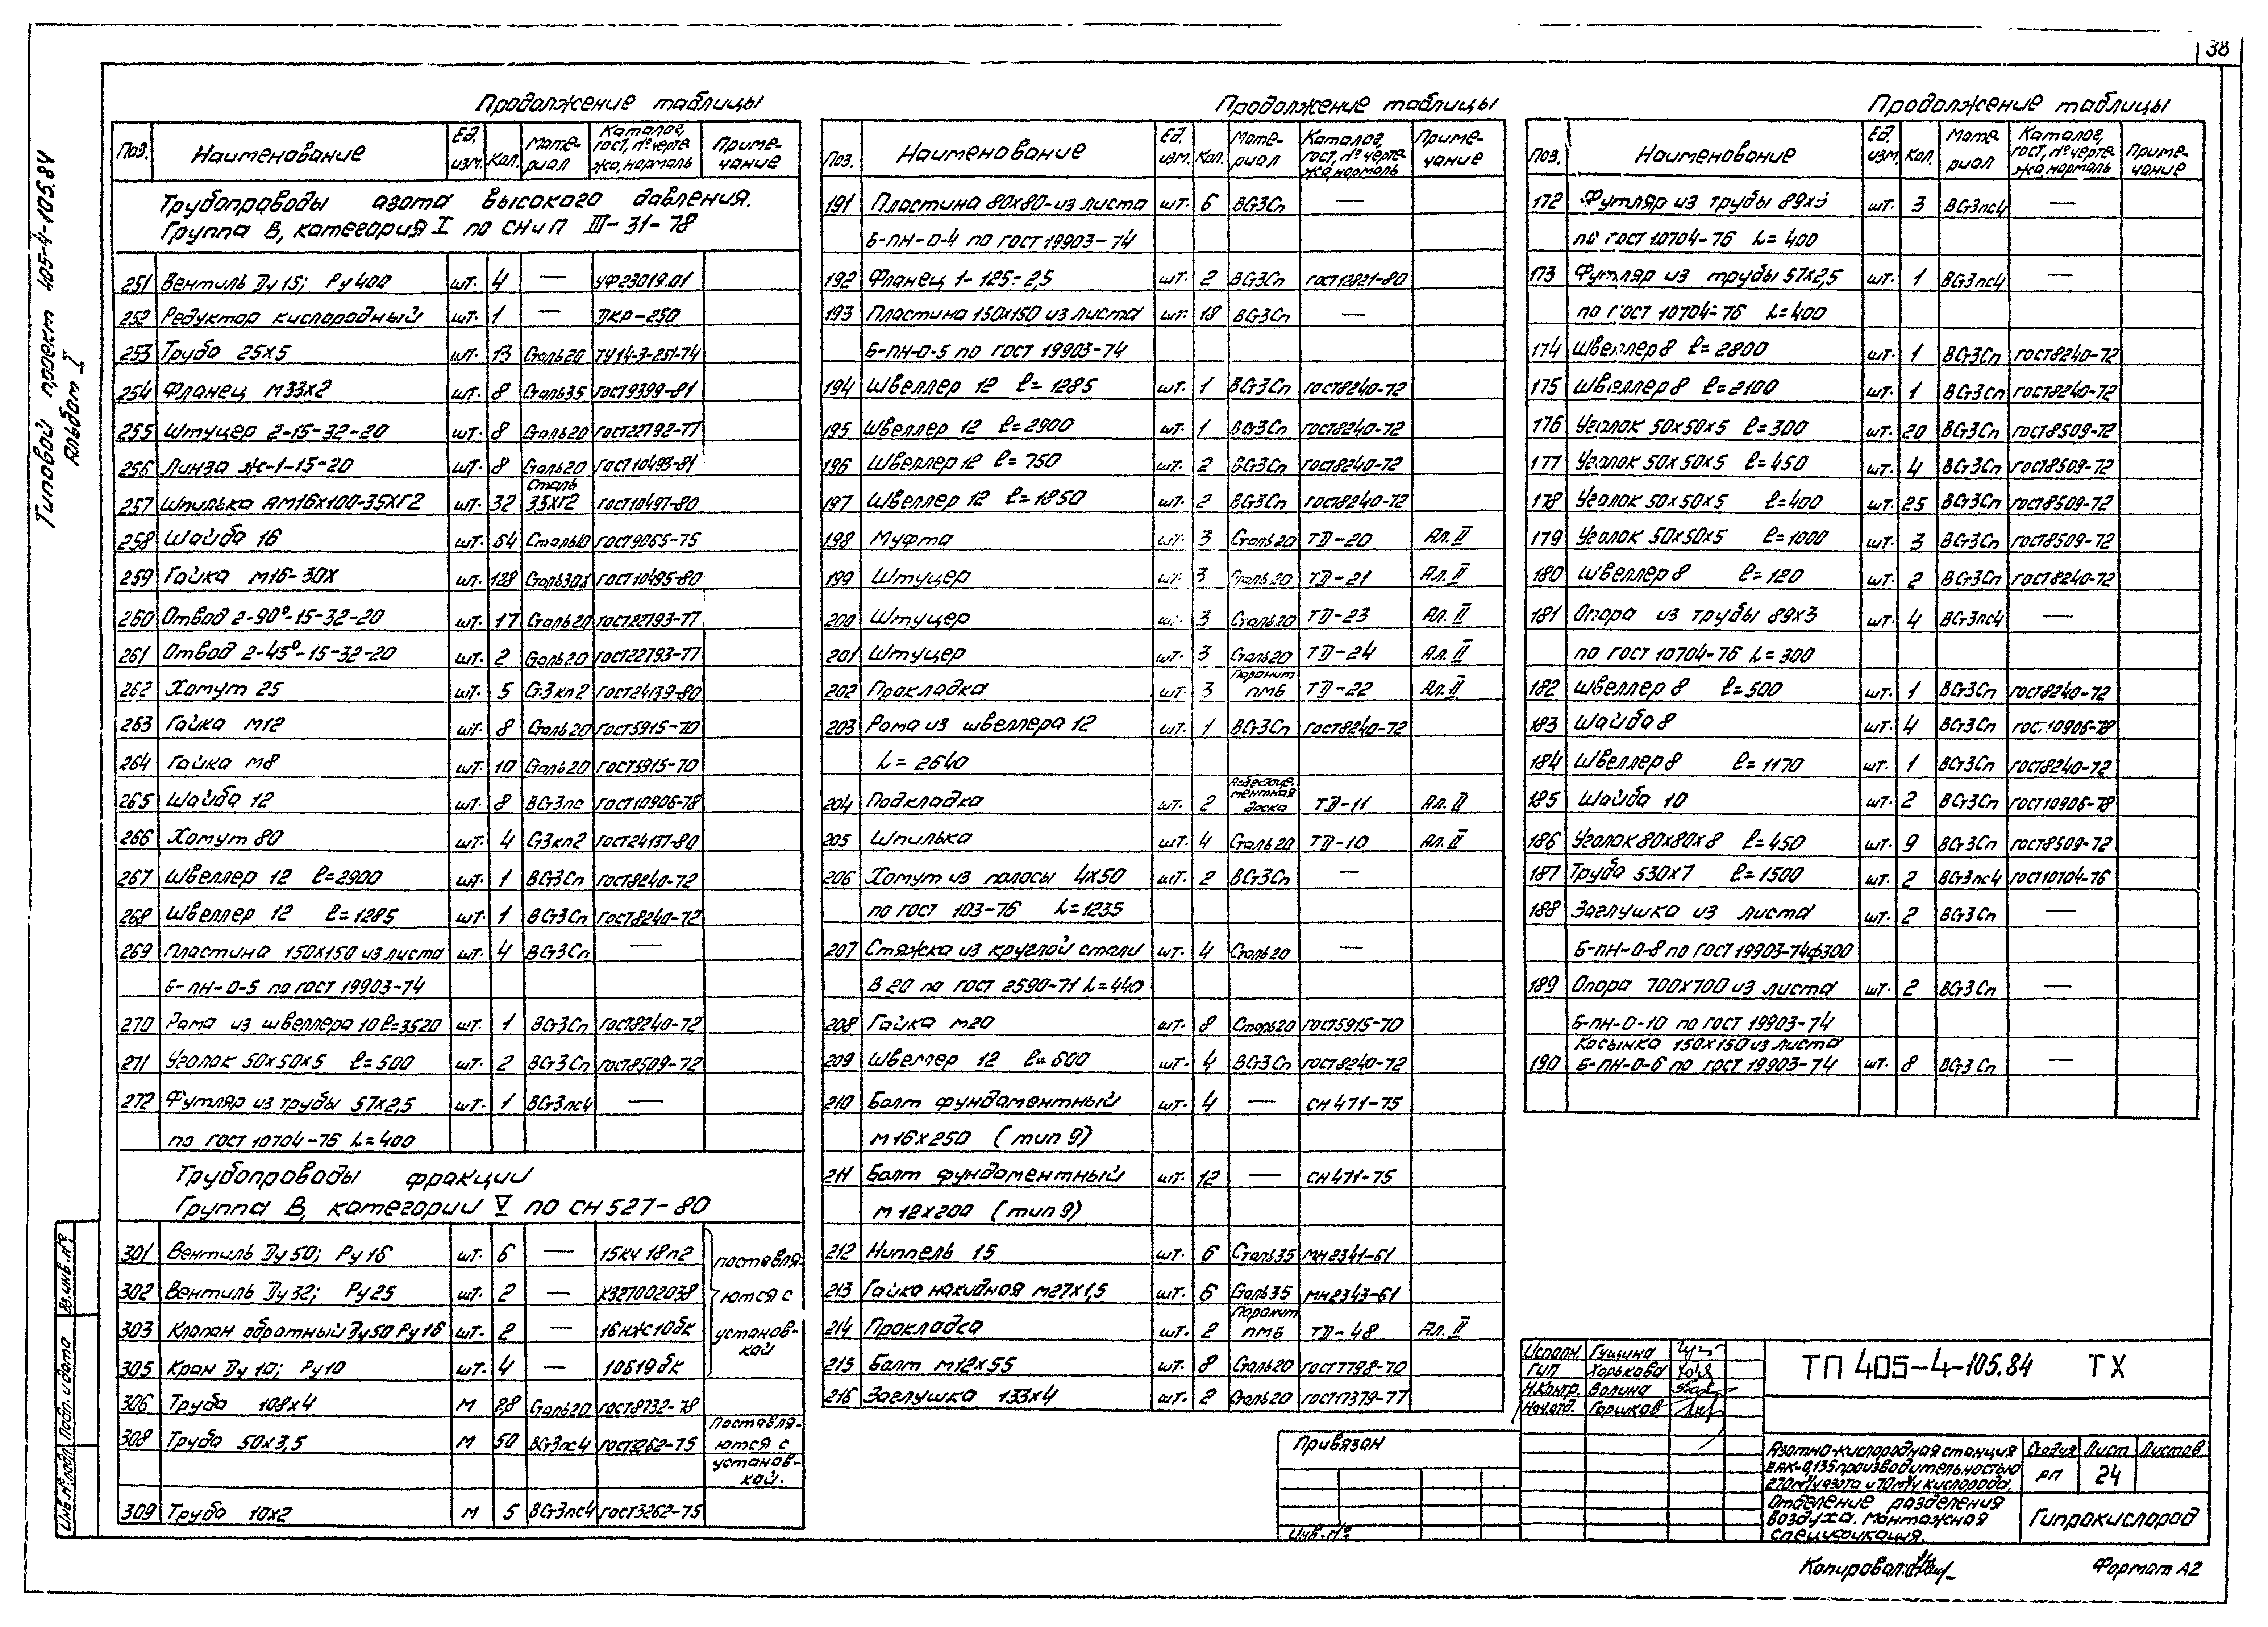 38
Типовой проект 405-4-105.84
Альбом I
Продолжение таблицы
Поз. Наименование Ед. изм. Кол. Мате-риал Каталог, гост, № черте-жа, нормаль Приме-чание
Трубопроводы азота высокого давления.
Группа В, категория I по СНиП III-31-78
251 Вентиль Ду 15; Ру 400 шт. 4 — УФ23019.01
252 Редуктор кислородный шт. 1 — ДКР-250
253 Труба 25х5 шт. 13 Сталь20 ТУ14-3-251-74
254 Фланец М33х2 шт. 8 Сталь35 ГОСТ9399-81
255 Штуцер 2-15-32-20 шт. 8 Сталь20 ГОСТ22792-77
256 Линза ЖС-1-15-20 шт. 8 Сталь20 ГОСТ10493-81
257 Шпилька АМ16х100-35ХГ2 шт. 32 Сталь 35ХГ2 ГОСТ10497-80
258 Шайба 16 шт. 64 Сталь10 ГОСТ9065-75
259 Гайка М16-30Х шт. 128 Сталь30Х ГОСТ10495-80
260 Отвод 2-90°-15-32-20 шт. 17 Сталь20 ГОСТ22793-77
261 Отвод 2-45°-15-32-20 шт. 2 Сталь20 ГОСТ22793-77
262 Хомут 25 шт. 5 Ст3кп2 ГОСТ24139-80
263 Гайка М12 шт. 8 Сталь20 ГОСТ5915-70
264 Гайка М8 шт. 10 Сталь20 ГОСТ5915-70
265 Шайба 12 шт. 8 ВСт3пс ГОСТ10906-78
266 Хомут 80 шт. 4 Ст3кп2 ГОСТ24137-80
267 Швеллер 12 ℓ=2900 шт. 1 ВСт3Сп ГОСТ8240-72
268 Швеллер 12 ℓ=1285 шт. 1 ВСт3Сп ГОСТ8240-72
269 Пластина 150х150 из листа шт. 4 ВСт3Сп —
Б-ПН-О-5 по ГОСТ 19903-74
270 Рама из швеллера 10 ℓ=3520 шт. 1 ВСт3Сп ГОСТ8240-72
271 Уголок 50х50х5 ℓ=500 шт. 2 ВСт3Сп ГОСТ8509-72
272 Футляр из трубы 57х2,5 шт. 1 ВСт3пс4 —
по ГОСТ 10704-76 L=400
Трубопроводы фракции
Группа В, категории V по СН 527-80
301 Вентиль Ду 50; Ру 16 шт. 6 — 15кч 18п2 поставля-
302 Вентиль Ду 32; Ру 25 шт. 2 — К327002038 ются с
303 Клапан обратный Ду50 Ру16 шт. 2 — 16нж10бк установ-кой
305 Кран Ду 10; Ру10 шт. 4 — 10Б19бк
306 Труба 108х4 м 2,8 Сталь20 ГОСТ8732-78
308 Труба 50х3,5 м 50 ВСт3пс4 ГОСТ3262-75 Поставля-ются с установ-кой.
309 Труба 10х2 м 5 ВСт3пс4 ГОСТ3262-75
Продолжение таблицы
Поз. Наименование Ед. изм. Кол. Мате-риал Каталог, гост, № черте-жа, нормаль Приме-чание
191 Пластина 80х80-из листа шт. 6 ВСт3Сп —
Б-ПН-О-4 по ГОСТ 19903-74
192 Фланец 1-125-2,5 шт. 2 ВСт3Сп ГОСТ12821-80
193 Пластина 150х150 из листа шт. 18 ВСт3Сп —
Б-ПН-О-5 по ГОСТ 19903-74
194 Швеллер 12 ℓ=1285 шт. 1 ВСт3Сп ГОСТ8240-72
195 Швеллер 12 ℓ=2900 шт. 1 ВСт3Сп ГОСТ8240-72
196 Швеллер 12 ℓ=750 шт. 2 ВСт3Сп ГОСТ8240-72
197 Швеллер 12 ℓ=1850 шт. 2 ВСт3Сп ГОСТ8240-72
198 Муфта шт. 3 Сталь20 ТД-20 Ал. II
199 Штуцер шт. 3 Сталь20 ТД-21 Ал. II
200 Штуцер шт. 3 Сталь20 ТД-23 Ал. II
201 Штуцер шт. 3 Сталь20 ТД-24 Ал. II
202 Прокладка шт. 3 Паронит ПМБ ТД-22 Ал. II
203 Рама из швеллера 12 шт. 1 ВСт3Сп ГОСТ8240-72
L=2640
204 Подкладка шт. 2 Асбесто-це-ментная доска ТД-11 Ал. II
205 Шпилька шт. 4 Сталь20 ТД-10 Ал. II
206 Хомут из полосы 4х50 шт. 2 ВСт3Сп —
по ГОСТ 103-76 L=1235
207 Стяжка из круглой стали шт. 4 Сталь20 —
В 20 по ГОСТ 2590-71 L=440
208 Гайка М20 шт. 8 Сталь20 ГОСТ5915-70
209 Швеллер 12 ℓ=600 шт. 4 ВСт3Сп ГОСТ8240-72
210 Болт фундаментный шт. 4 — СН 471-75
М16х250 (тип 9)
211 Болт фундаментный шт. 12 — СН 471-75
М12х200 (тип 9)
212 Ниппель 15 шт. 6 Сталь35 МН2341-61
213 Гайка накидная М27х1,5 шт. 6 Сталь35 МН2343-61
214 Прокладка шт. 2 Паронит ПМБ ТД-48 Ал. II
215 Болт М12х55 шт. 8 Сталь20 ГОСТ7798-70
216 Заглушка 133х4 шт. 2 Сталь20 ГОСТ17379-77
Продолжение таблицы
Поз. Наименование Ед. изм. Кол. Мате-риал Каталог, гост, № черте-жа, нормаль Приме-чание
172 Футляр из трубы 89х3 шт. 3 ВСт3пс4 —
по ГОСТ 10704-76 L=400
173 Футляр из трубы 57х2,5 шт. 1 ВСт3пс4 —
по ГОСТ 10704-76 L=400
174 Швеллер 8 ℓ=2800 шт. 1 ВСт3Сп ГОСТ8240-72
175 Швеллер 8 ℓ=2100 шт. 1 ВСт3Сп ГОСТ8240-72
176 Уголок 50х50х5 ℓ=300 шт. 20 ВСт3Сп ГОСТ8509-72
177 Уголок 50х50х5 ℓ=450 шт. 4 ВСт3Сп ГОСТ8509-72
178 Уголок 50х50х5 ℓ=400 шт. 25 ВСт3Сп ГОСТ8509-72
179 Уголок 50х50х5 ℓ=1000 шт. 3 ВСт3Сп ГОСТ8509-72
180 Швеллер 8 ℓ=120 шт. 2 ВСт3Сп ГОСТ8240-72
181 Опора из трубы 89х3 шт. 4 ВСт3пс4 —
по ГОСТ 10704-76 L=300
182 Швеллер 8 ℓ=500 шт. 1 ВСт3Сп ГОСТ8240-72
183 Шайба 8 шт. 4 ВСт3Сп ГОСТ10906-78
184 Швеллер 8 ℓ=1170 шт. 1 ВСт3Сп ГОСТ8240-72
185 Шайба 10 шт. 2 ВСт3Сп ГОСТ10906-78
186 Уголок 80х80х8 ℓ=450 шт. 9 ВСт3Сп ГОСТ8509-72
187 Труба 530х7 ℓ=1500 шт. 2 ВСт3пс4 ГОСТ10704-76
188 Заглушка из листа шт. 2 ВСт3Сп —
Б-ПН-О-8 по ГОСТ 19903-74ф300
189 Опора 700х700 из листа шт. 2 ВСт3Сп —
Б-ПН-О-10 по ГОСТ 19903-74
Косынка 150х150 из листа
190 Б-ПН-О-6 по ГОСТ 19903-74 шт. 8 ВСт3Сп —
Взам.инв.№
Подп. и дата
Инв.№подл.
Привязан
Инв.№
Исполн. Гущина
ГИП Хорькова
Н.Контр. Волина
Нач.отд. Горшков
ТП 405-4-105.84 ТХ
Азотно-кислородная станция
2АК-0,135 производительностью
270м³/ч азота и 70м³/ч кислорода.
Стадия Лист Листов
РП 24
Отделение разделения
воздуха. Монтажная
спецификация.
Гипрокислород
Копировал:
Формат А2